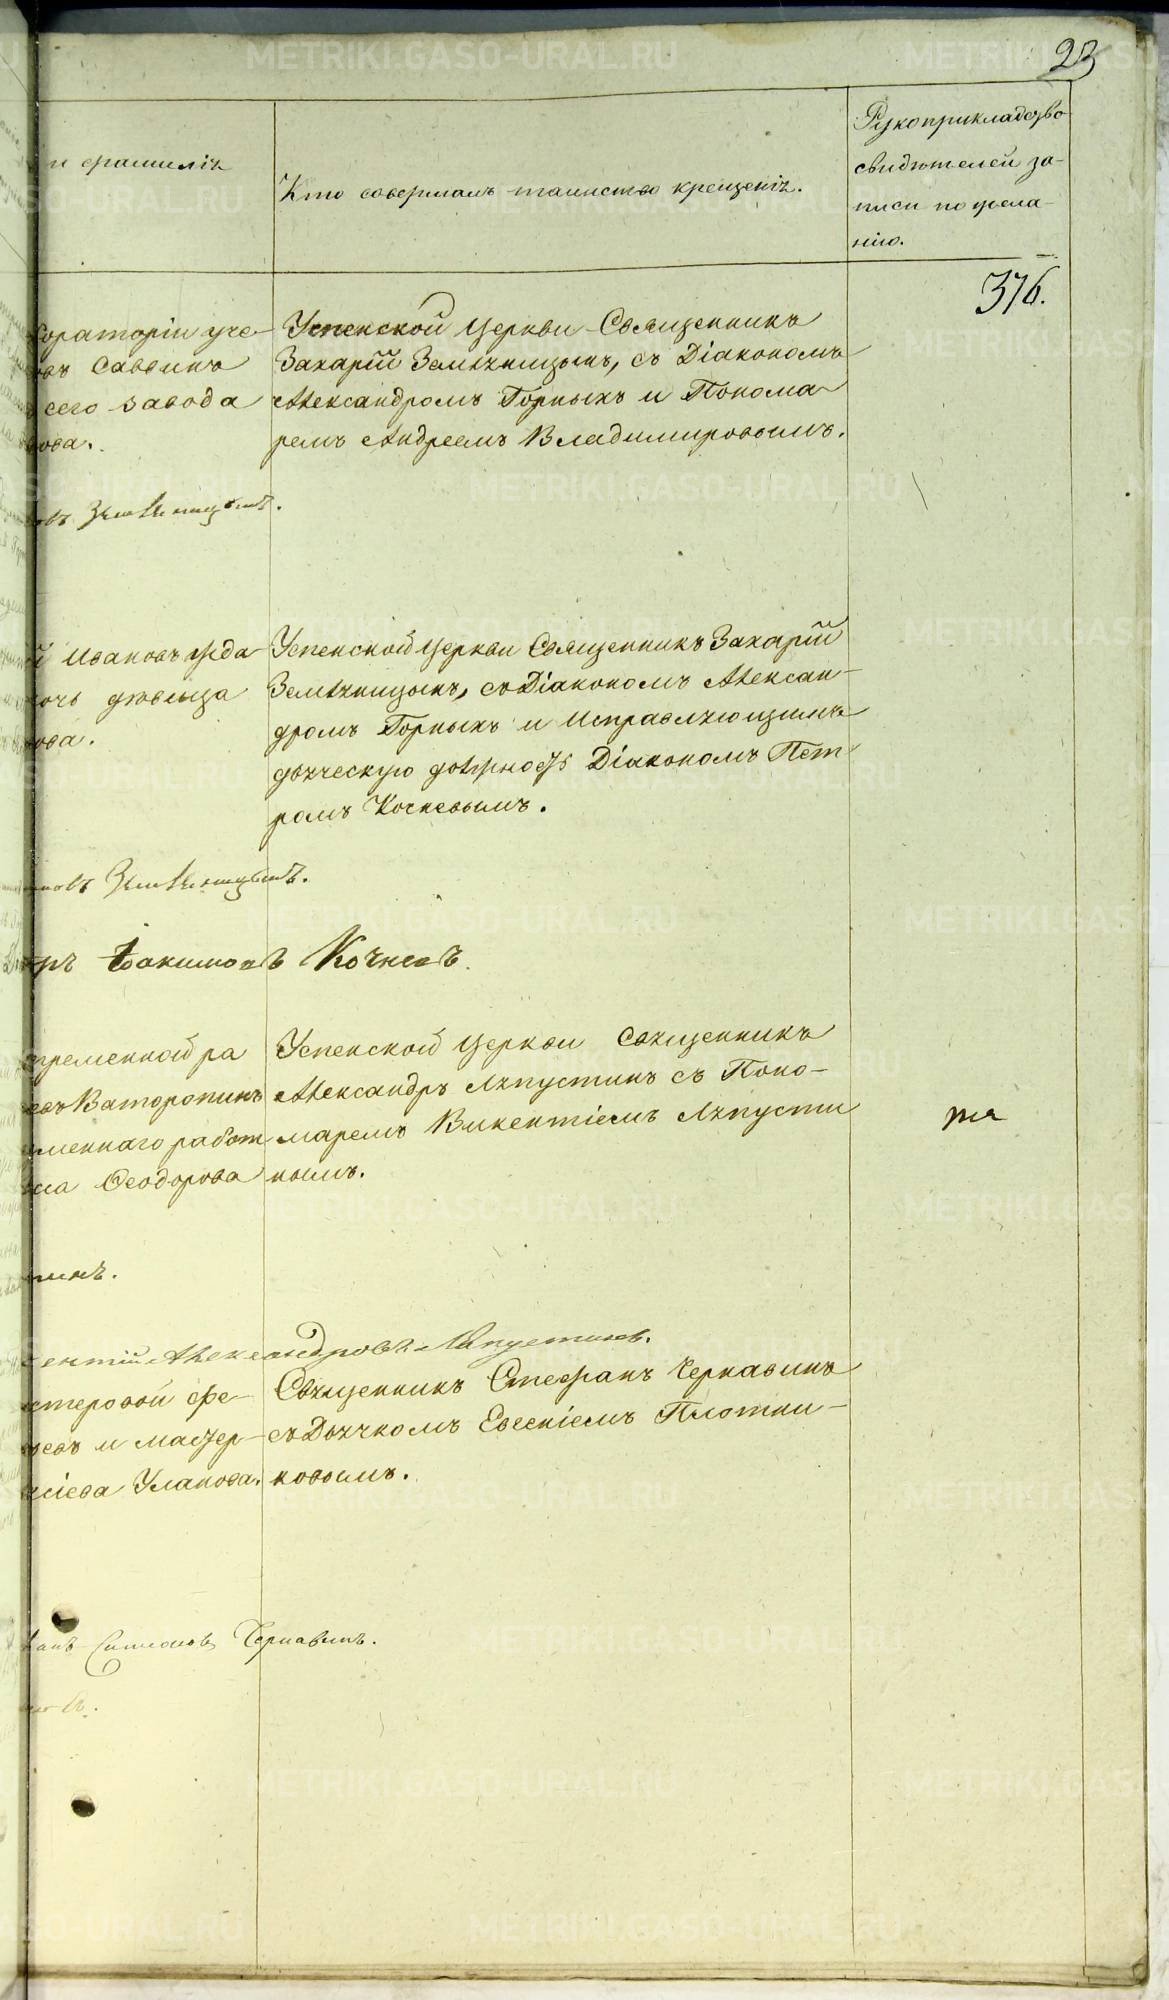 23
и фамилія
Кто совершалъ таинство крещенія.
Рукоприкладство
свидѣтелей за-
писи по жела-
нію.
376.
бораторіи уче-
овъ Саввинъ
сего завода
ова.
Успенской Церкви Священникъ
Захарій Земляницынъ, съ Діакономъ
Александромъ Горныхъ и Понома
ремъ Андреемъ Владимировымъ.
овъ Земляницынъ.
й Ивановъ
дочь дѣвица
ова.
Успенской Церкви Священникъ Захарій
Земляницынъ, съ Діакономъ Алексан-
дромъ Горныхъ и Исправляющимъ
дьяческую должность Діакономъ Пет
ромъ Кочневымъ.
новъ Земляницынъ.
тръ Іоакимовъ Кочневъ.
ременной ра
евъ Ваторопинъ
менного работ
на Ѳеодорова
Успенской Церкви Священникъ
Александръ Ляпустинъ съ Поно-
маремъ Викентіемъ Ляпусти
нымъ.
та
тинъ.
кентій Александровъ Ляпустинъ.
стеровой фе-
ьевъ и мастер-
сіева Уланова.
Священникъ Стефанъ Чернавинъ
съ Дьячкомъ Евгеніемъ Плотни-
ковымъ.
фанъ Симеоновъ Чернавинъ.
METRIKI.GASO-URAL.RU